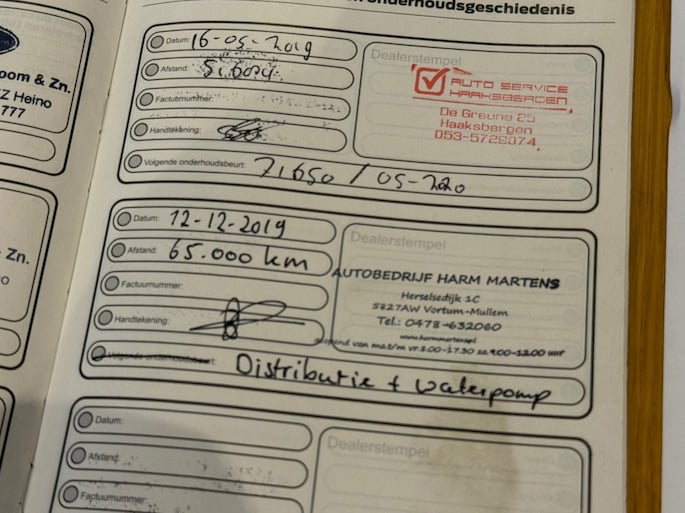 onderhoudsgeschiedenis
oom & Zn.
Z Heino
777
Zn.
Datum: 16-05-2019
Afstand:
Factuurnummer:
Handtekening:
Volgende onderhoudsbeurt: 71.650 / 05-220
Dealerstempel
AUTO SERVICE
HAAKSBERGEN
De Greune 25
Haaksbergen
053-5729074
Datum: 12-12-2019
Afstand: 65.000 km
Factuurnummer:
Handtekening:
Volgende onderhoudsbeurt: Distributie + waterpomp
Dealerstempel
AUTOBEDRIJF HARM MARTENS
Herselsedijk 1C
5827AW Vortum-Mullem
Tel.: 0478-632060
www.harmmartens.nl
geopend van ma t/m vr. 8.00-17.30 za 9.00-12.00 uur
Datum:
Afstand:
Factuurnummer:
Dealerstempel